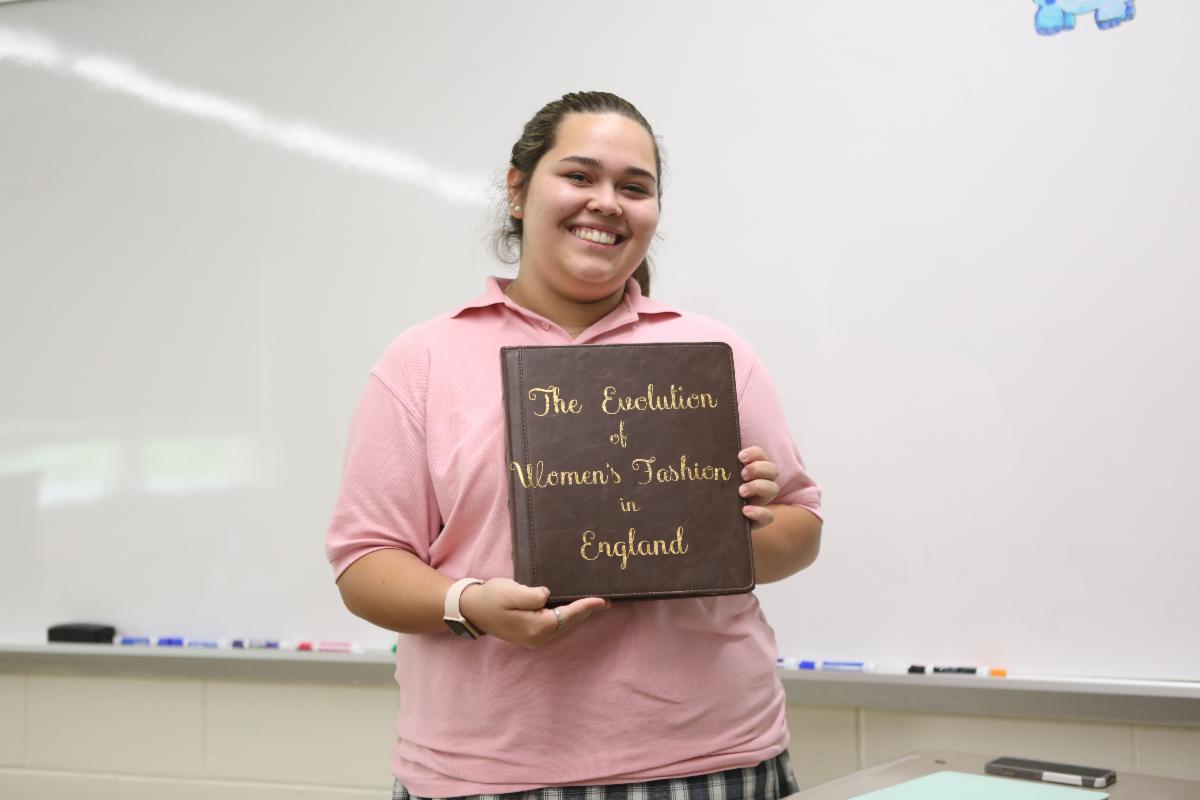 The Evolution
of
Women's Fashion
in
England